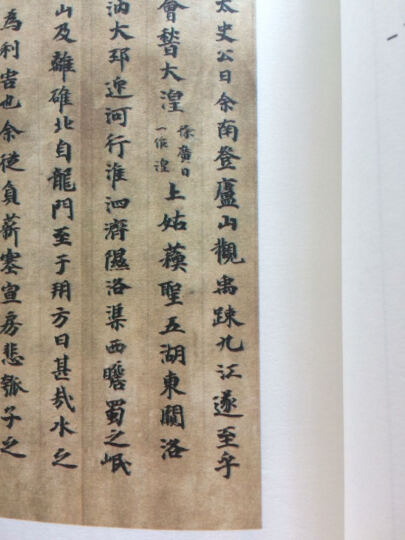 太史公曰余南登廬山觀禹踈九江遂至乎
會嵇大湟徐廣曰一作湿上姑蘓望五湖東闚洛
汭大邳迎河行淮泗濟濕洛渠西瞻蜀之岷
山及離碓北自龍門至于朔方曰甚哉水之
為利害也余從負薪塞宣房悲瓠子之